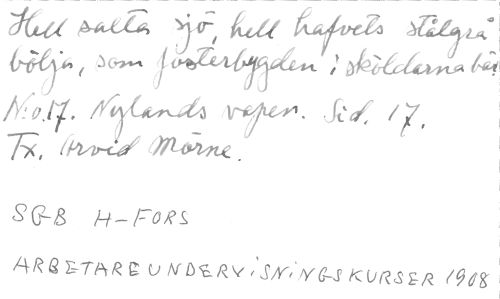 Hell salta sjö, hell hafvets stålgrå
bölja, som fosterbygden i sköldarna bär
N:o 17. Nylands vapen. Sid. 17.
Tx. Arvid Mörne.
SGB H-FORS
ARBETAREUNDERVISNINGSKURSER 1908